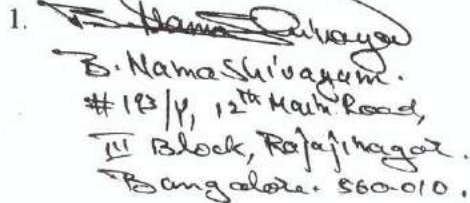 1. B. Namashivayam
B. NamaShivayam.
# 193/Y, 12th Main Road,
III Block, Rajajinagar.
Bangalore. 560-010.